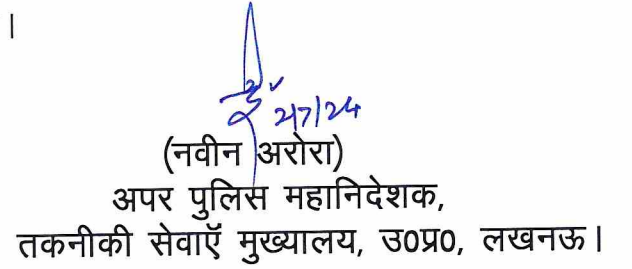 ।
2/7/24
(नवीन अरोरा)
अपर पुलिस महानिदेशक,
तकनीकी सेवाऍ मुख्यालय, उ0प्र0, लखनऊ।